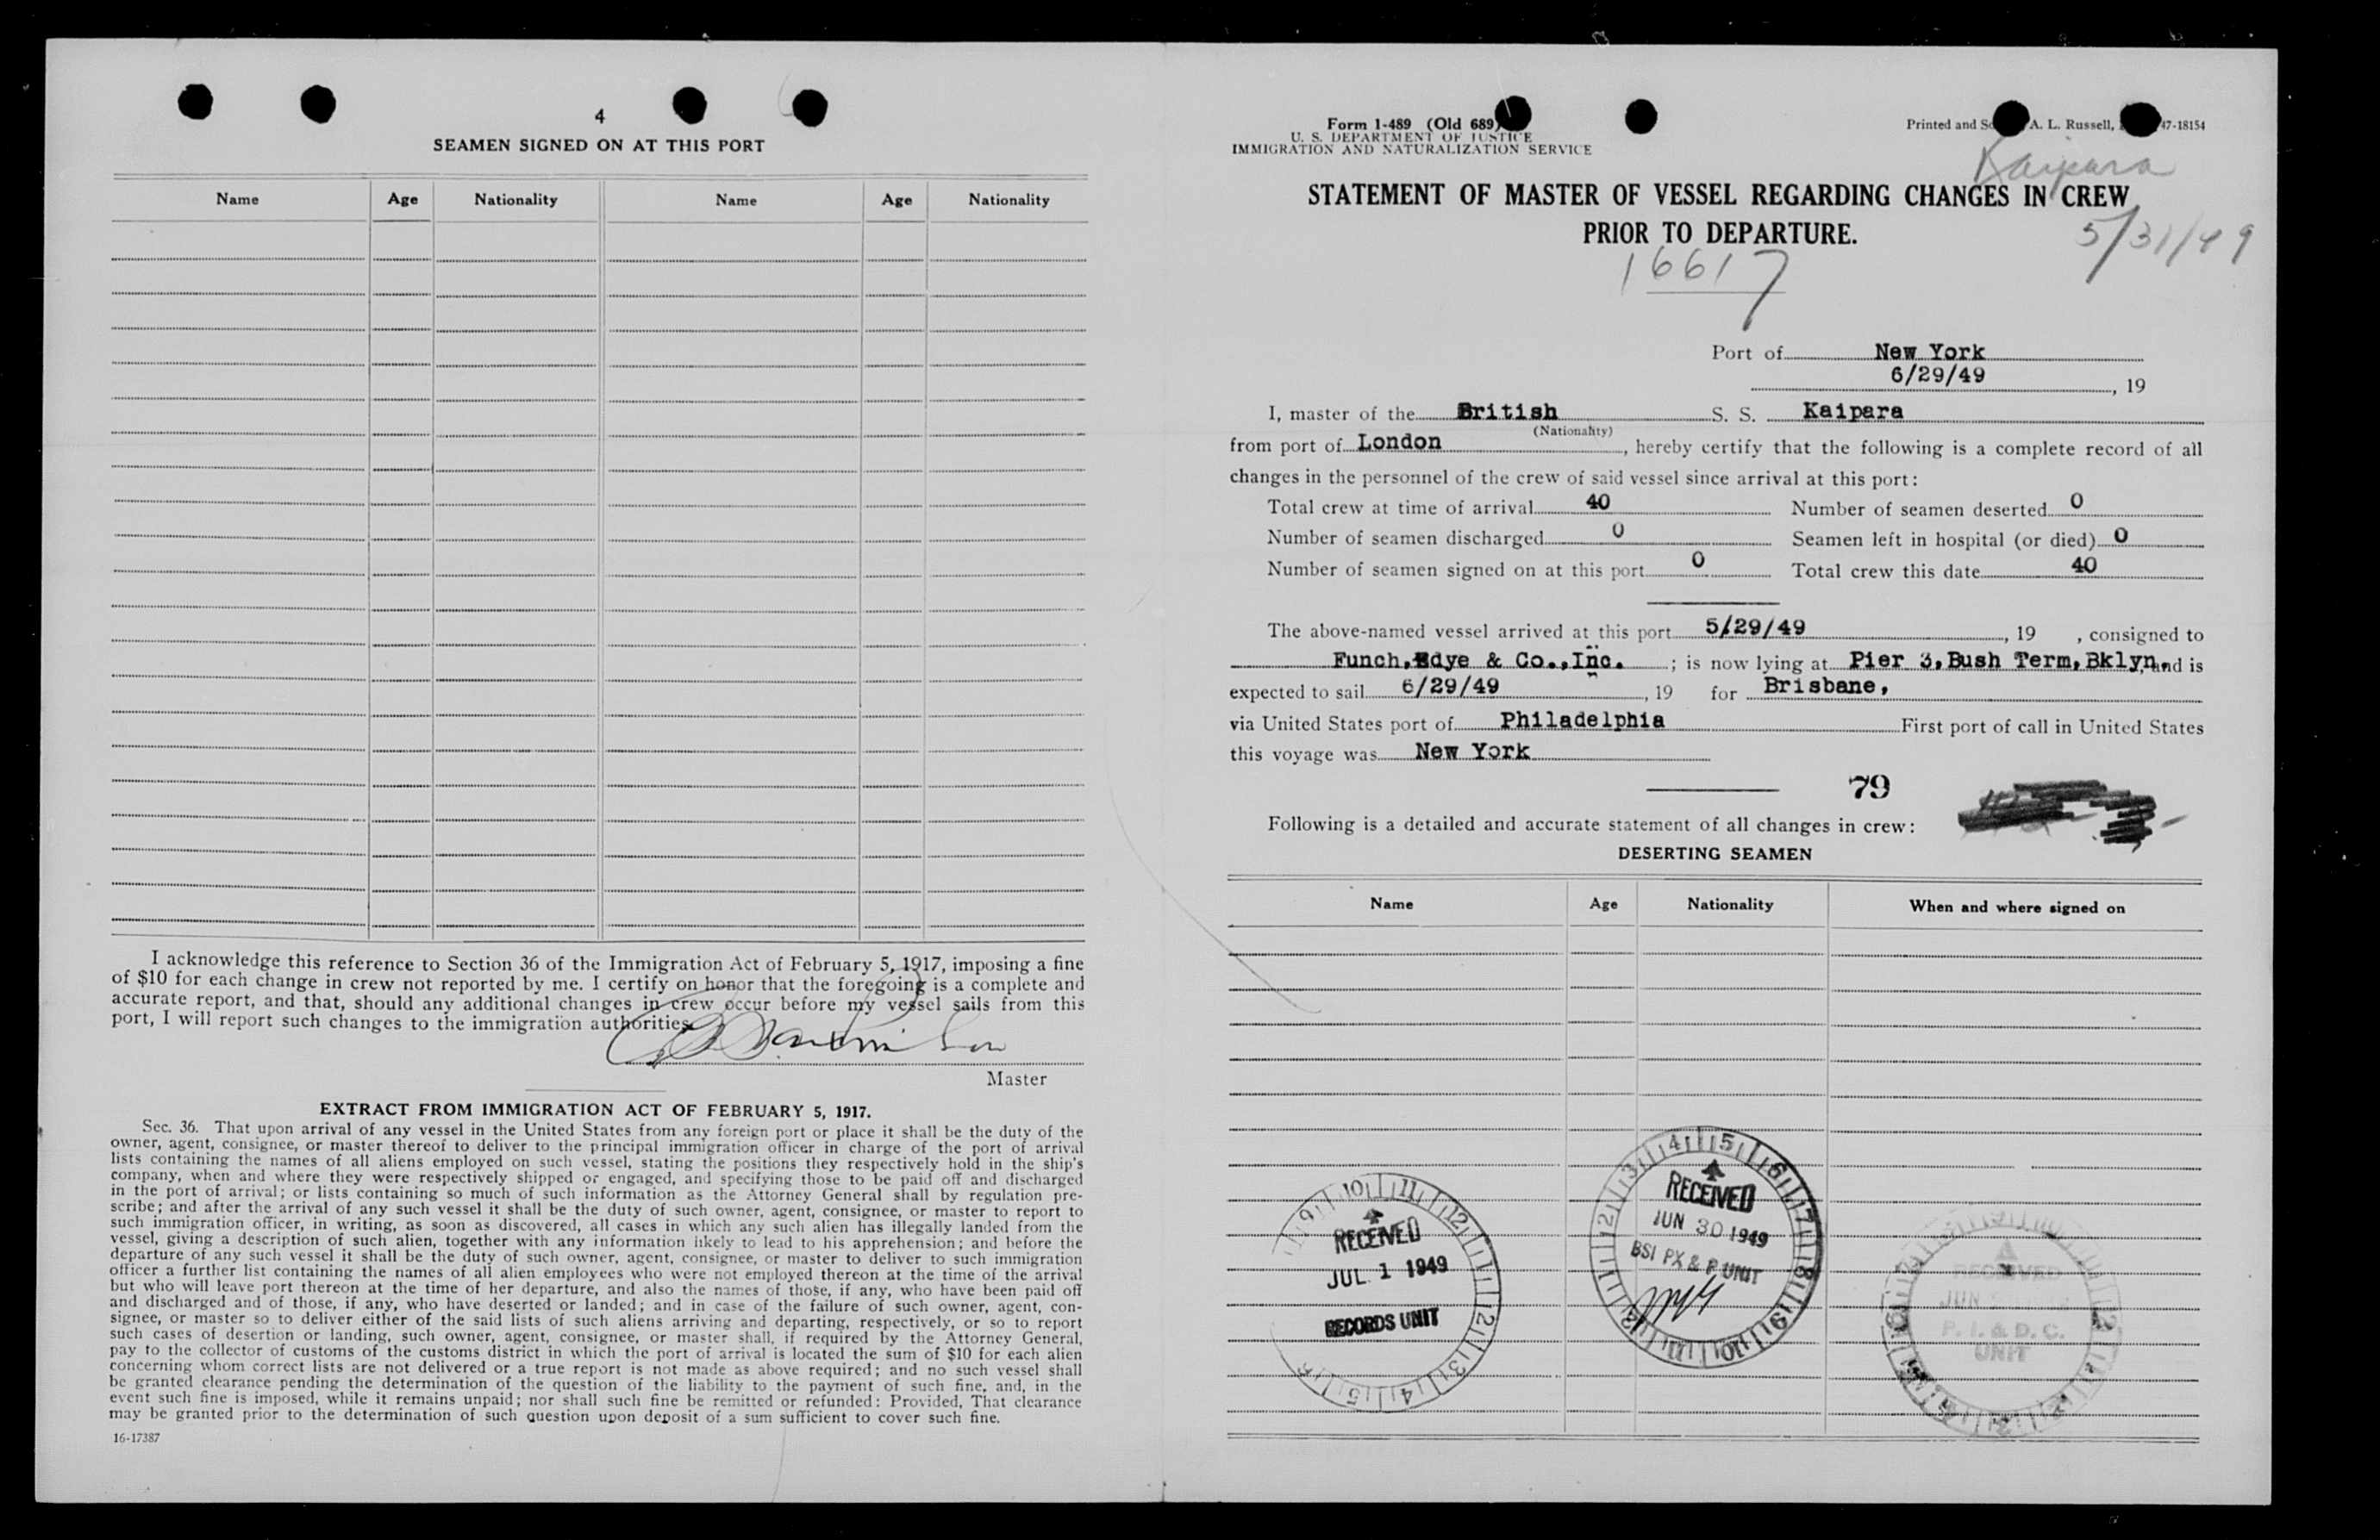 4
SEAMEN SIGNED ON AT THIS PORT
Name Age Nationality Name Age Nationality
I acknowledge this reference to Section 36 of the Immigration Act of February 5, 1917, imposing a fine
of $10 for each change in crew not reported by me. I certify on honor that the foregoing is a complete and
accurate report, and that, should any additional changes in crew occur before my vessel sails from this
port, I will report such changes to the immigration authorities
Master
EXTRACT FROM IMMIGRATION ACT OF FEBRUARY 5, 1917.
Sec. 36. That upon arrival of any vessel in the United States from any foreign port or place it shall be the duty of the
owner, agent, consignee, or master thereof to deliver to the principal immigration officer in charge of the port of arrival
lists containing the names of all aliens employed on such vessel, stating the positions they respectively hold in the ship's
company, when and where they were respectively shipped or engaged, and specifying those to be paid off and discharged
in the port of arrival; or lists containing so much of such information as the Attorney General shall by regulation pre-
scribe; and after the arrival of any such vessel it shall be the duty of such owner, agent, consignee, or master to report to
such immigration officer, in writing, as soon as discovered, all cases in which any such alien has illegally landed from the
vessel, giving a description of such alien, together with any information likely to lead to his apprehension; and before the
departure of any such vessel it shall be the duty of such owner, agent, consignee, or master to deliver to such immigration
officer a further list containing the names of all alien employees who were not employed thereon at the time of the arrival
but who will leave port thereon at the time of her departure, and also the names of those, if any, who have been paid off
and discharged and of those, if any, who have deserted or landed; and in case of the failure of such owner, agent, con-
signee, or master so to deliver either of the said lists of such aliens arriving and departing, respectively, or so to report
such cases of desertion or landing, such owner, agent, consignee, or master shall, if required by the Attorney General,
pay to the collector of customs of the customs district in which the port of arrival is located the sum of $10 for each alien
concerning whom correct lists are not delivered or a true report is not made as above required; and no such vessel shall
be granted clearance pending the determination of the question of the liability to the payment of such fine, and, in the
event such fine is imposed, while it remains unpaid; nor shall such fine be remitted or refunded: Provided, That clearance
may be granted prior to the determination of such question upon deposit of a sum sufficient to cover such fine.
16-17387
Form 1-489 (Old 689)
U. S. DEPARTMENT OF JUSTICE
IMMIGRATION AND NATURALIZATION SERVICE
Printed and A. L. Russell, 47-18154
Kaipara
STATEMENT OF MASTER OF VESSEL REGARDING CHANGES IN CREW
PRIOR TO DEPARTURE.
5/31/49
16617
Port of New York
6/29/49, 19
I, master of the British S. S. Kaipara
(Nationality)
from port of London, hereby certify that the following is a complete record of all
changes in the personnel of the crew of said vessel since arrival at this port:
Total crew at time of arrival 40 Number of seamen deserted 0
Number of seamen discharged 0 Seamen left in hospital (or died) 0
Number of seamen signed on at this port 0 Total crew this date 40
The above-named vessel arrived at this port 5/29/49, 19 , consigned to
Funch,Edye & Co.,Inc. ; is now lying at Pier 3,Bush Term,Bklyn, and is
expected to sail 6/29/49, 19 for Brisbane,
via United States port of Philadelphia First port of call in United States
this voyage was New York
79
Following is a detailed and accurate statement of all changes in crew:
DESERTING SEAMEN
Name Age Nationality When and where signed on
RECEIVED
JUL 1 1949
RECORDS UNIT
RECEIVED
JUN 30 1949
BSI PX & P UNIT
RECEIVED
JUN
P. I. & D. C.
UNIT